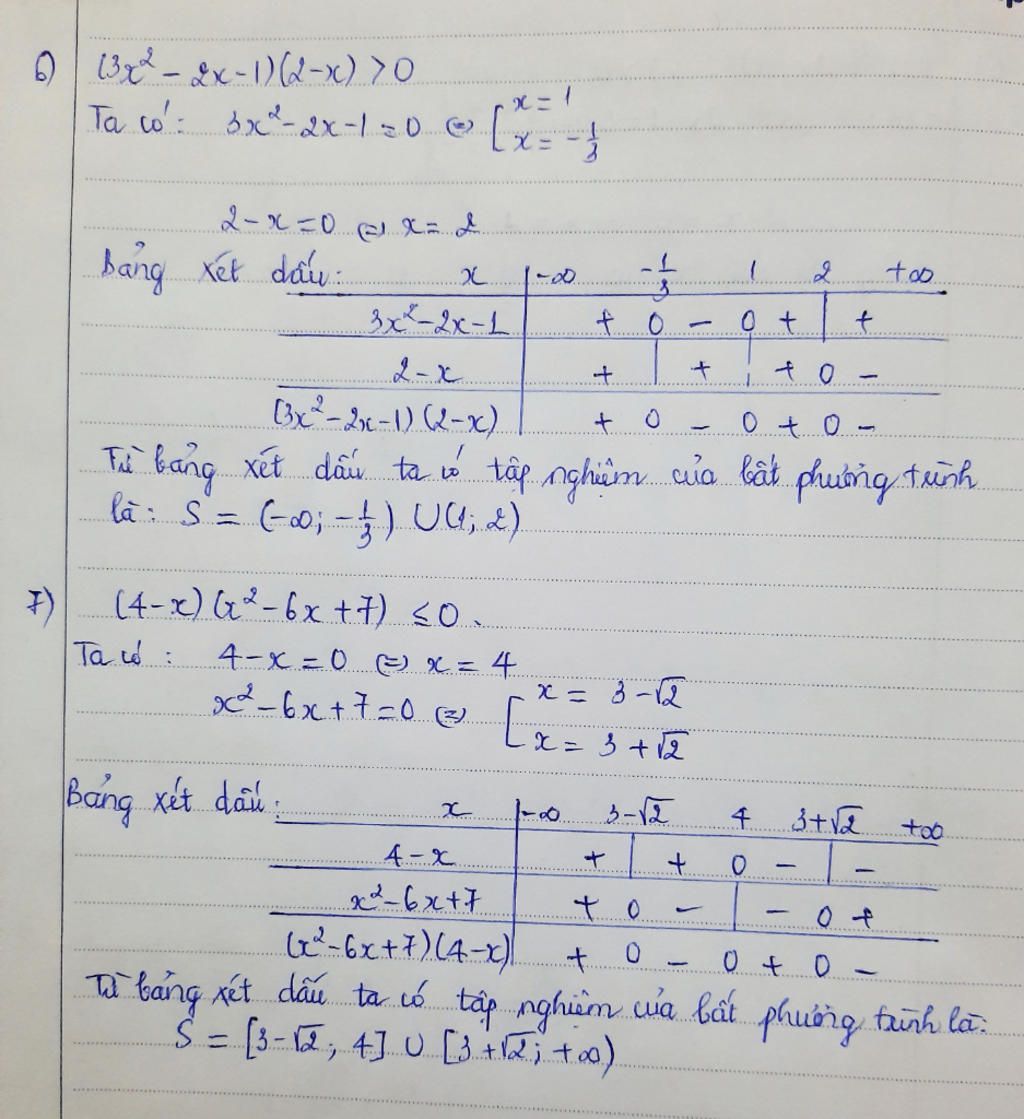 6) (3x² - 2x - 1)(2 - x) > 0
Ta có: 3x² - 2x - 1 = 0 ⇔ [ x = 1
x = -1/3
2 - x = 0 ⇔ x = 2
Bảng xét dấu: x | -∞ -1/3 1 2 +∞
3x² - 2x - 1 | + 0 - 0 + | +
2 - x | + | + | + 0 -
(3x² - 2x - 1)(2 - x) | + 0 - 0 + 0 -
Từ bảng xét dấu ta có tập nghiệm của bất phương trình
là: S = (-∞; -1/3) ∪ (1; 2)
7) (4 - x)(x² - 6x + 7) ≤ 0.
Ta có: 4 - x = 0 ⇔ x = 4
x² - 6x + 7 = 0 ⇔ [ x = 3 - √2
x = 3 + √2
Bảng xét dấu: x | -∞ 3-√2 4 3+√2 +∞
4 - x | + | + 0 - | -
x² - 6x + 7 | + 0 - | - 0 +
(x² - 6x + 7)(4 - x) | + 0 - 0 + 0 -
Từ bảng xét dấu ta có tập nghiệm của bất phương trình là:
S = [3 - √2; 4] ∪ [3 + √2; +∞)